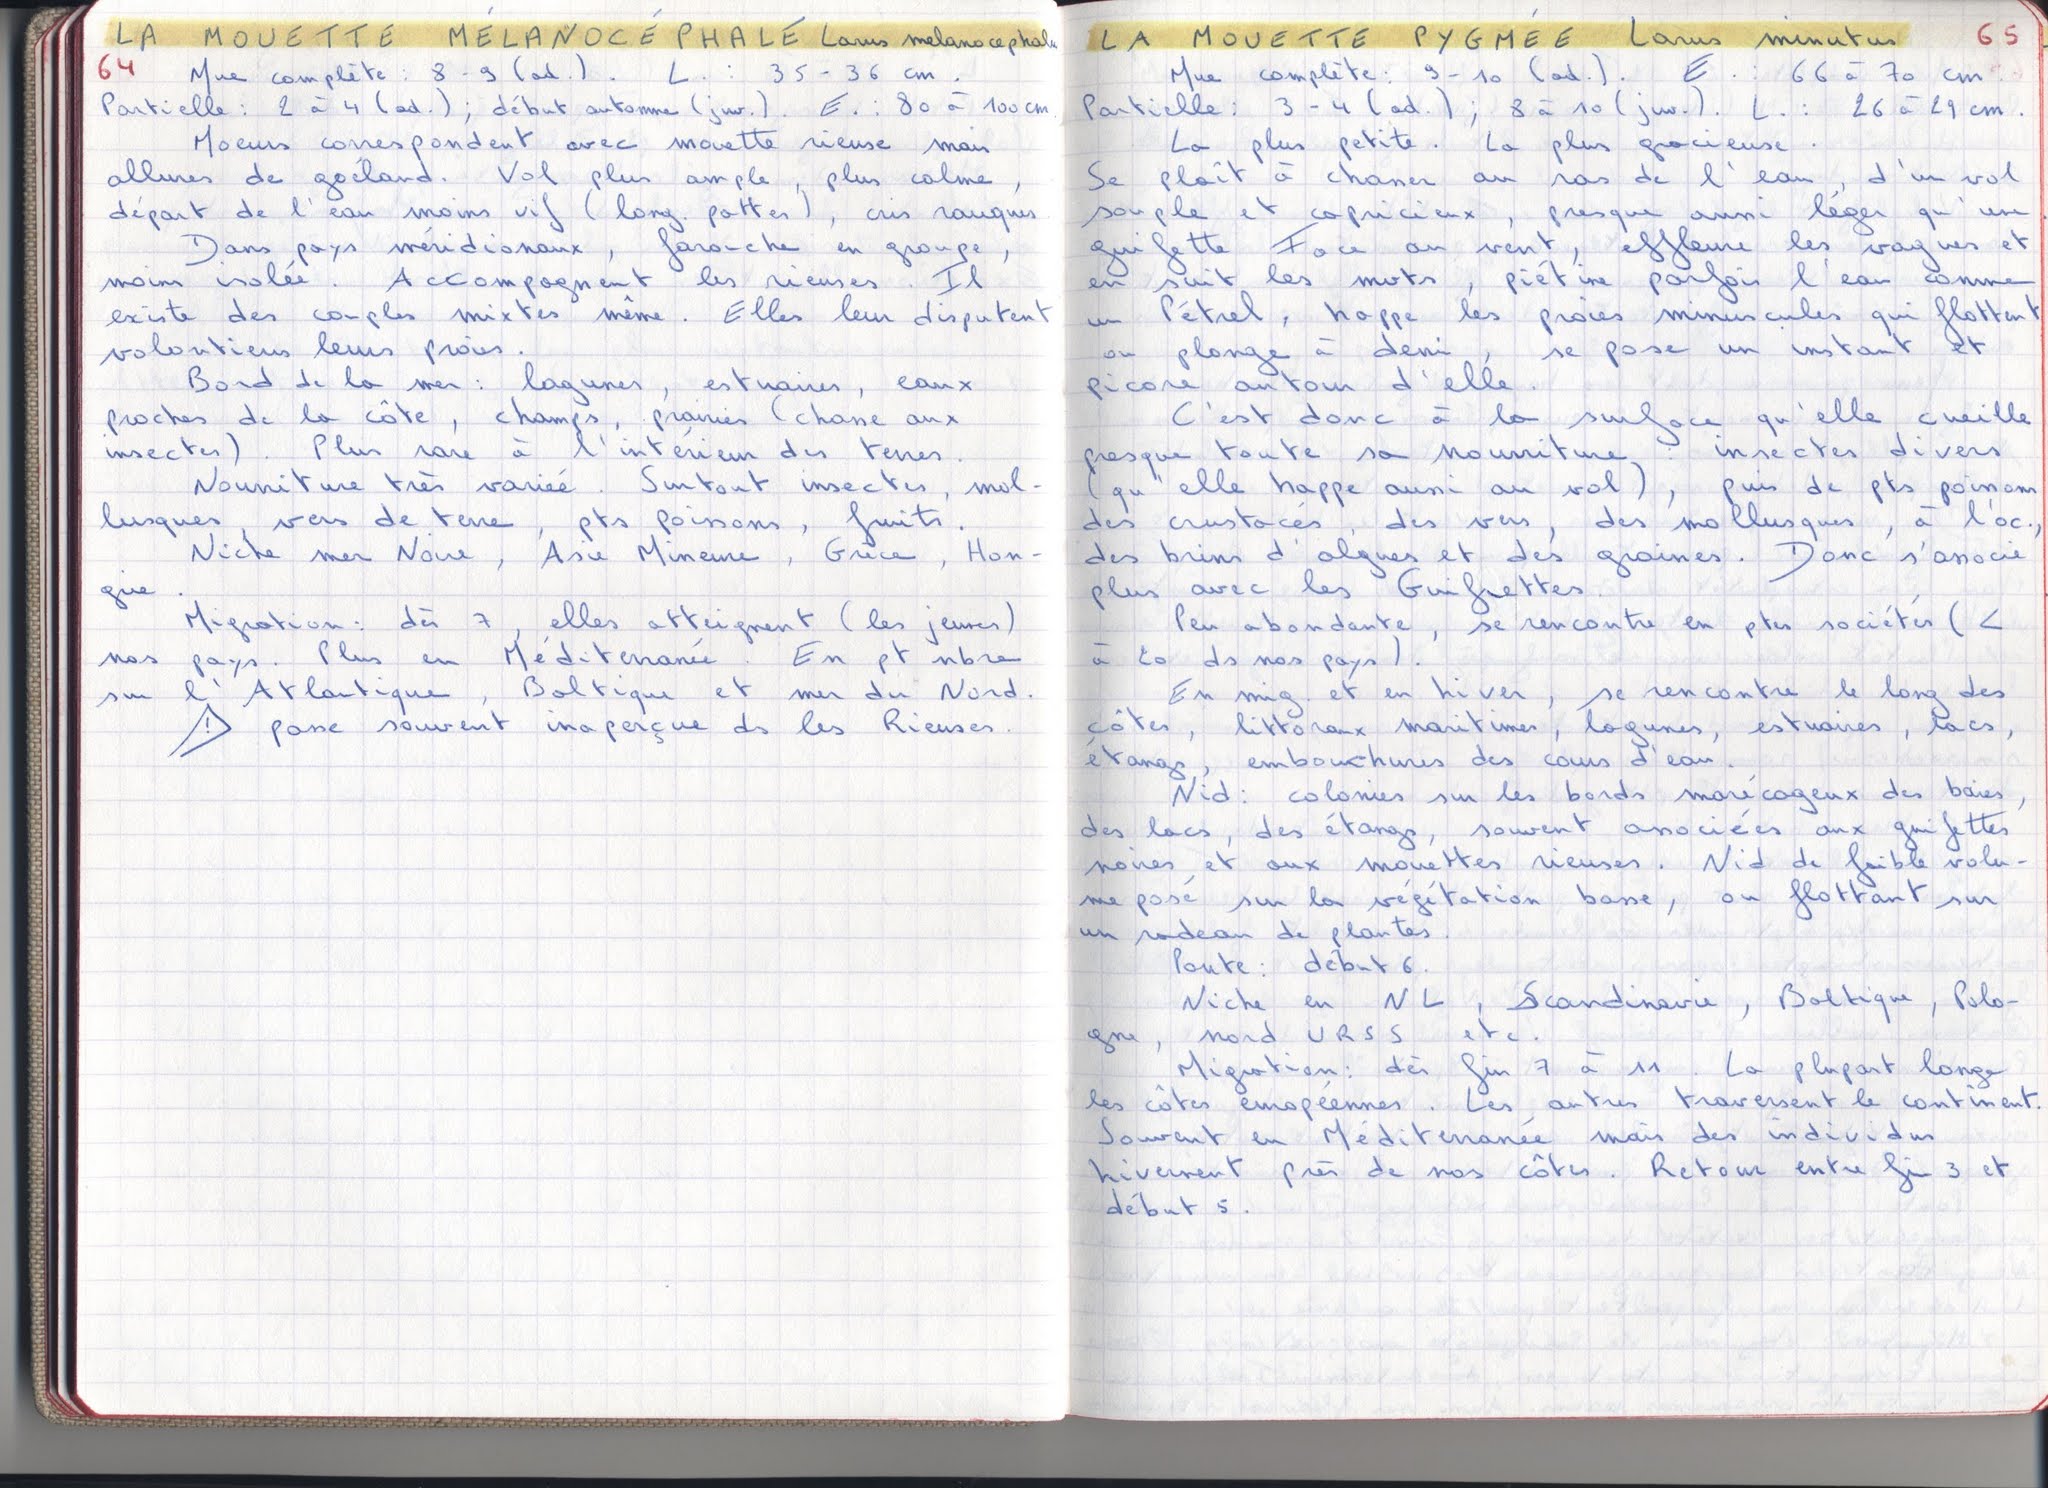 LA MOUETTE MÉLANOCÉPHALE Larus melanocephalu
64 Mue complète : 8-9 (ad.). L. : 35-36 cm.
Partielle : 2 à 4 (ad.) ; début automne (juv.). E. : 80 à 100 cm.
Moeurs correspondent avec mouette rieuse mais
allures de goéland. Vol plus ample, plus calme,
départ de l'eau moins vif (long. pattes), cris rauques.
Dans pays méridionaux, farouche en groupe,
moins isolée. Accompagnent les rieuses. Il
existe des couples mixtes même. Elles leur disputent
volontiers leurs proies.
Bord de la mer : lagunes, estuaires, eaux
proches de la côte, champs, prairies (chasse aux
insectes). Plus rare à l'intérieur des terres.
Nourriture très variée. Surtout insectes, mol-
lusques, vers de terre, pts poissons, fruits.
Niche mer Noire, Asie Mineure, Grèce, Hon-
grie.
Migration : dès 7, elles atteignent (les jeunes)
nos pays. Plus en Méditerranée. En pt nbre
sur l'Atlantique, Baltique et mer du Nord.
! passe souvent inaperçue ds les Rieuses.
LA MOUETTE PYGMÉE Larus minutus 65
Mue complète : 9-10 (ad.). E. : 66 à 70 cm
Partielle : 3-4 (ad.) ; 8 à 10 (juv.). L. : 26 à 29 cm.
La plus petite. La plus gracieuse.
Se plaît à chasser au ras de l'eau, d'un vol
souple et capricieux, presque aussi léger qu'une
guifette. Face au vent, effleure les vagues et
en suit les mots, piétine parfois l'eau comme
un Pétrel, happe les proies minuscules qui flottent
ou plonge à demi, se pose un instant et
picore autour d'elle.
C'est donc à la surface qu'elle cueille
presque toute sa nourriture : insectes divers
(qu'elle happe aussi au vol), puis de pts poissons
des crustacés, des vers, des mollusques, à l'oc.,
des brins d'algues et des graines. Donc s'associe
plus avec les Guifrettes.
Peu abondante, se rencontre en ptes sociétés (<
à 20 ds nos pays).
En mig. et en hiver, se rencontre le long des
côtes, littoraux maritimes, lagunes, estuaires, lacs,
étangs, embouchures des cours d'eau.
Nid : colonies sur les bords marécageux des baies,
des lacs, des étangs, souvent associées aux guifettes
noires et aux mouettes rieuses. Nid de faible volu-
me posé sur la végétation basse, ou flottant sur
un radeau de plantes.
Ponte : début 6.
Niche en NL, Scandinavie, Baltique, Polo-
gne, nord URSS etc.
Migration : dès fin 7 à 11. La plupart longe
les côtes européennes. Les autres traversent le continent.
Souvent en Méditerranée mais des individus
hivernent près de nos côtes. Retour entre fin 3 et
début 5.